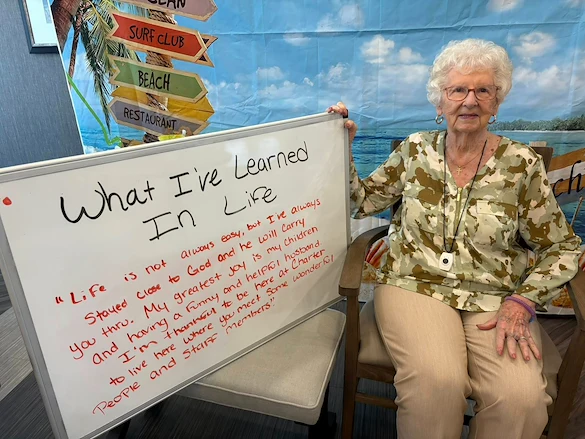 OCEAN
SURF CLUB
BEACH
RESTAURANT
What I've Learned
In Life
"Life is not always easy, but I've always
stayed close to God and he will carry
you thru. My greatest joy is my children
and having a funny and helpful husband
I'm thankful to be here at Charter
to live here where you meet some wonderful
People and staff members"